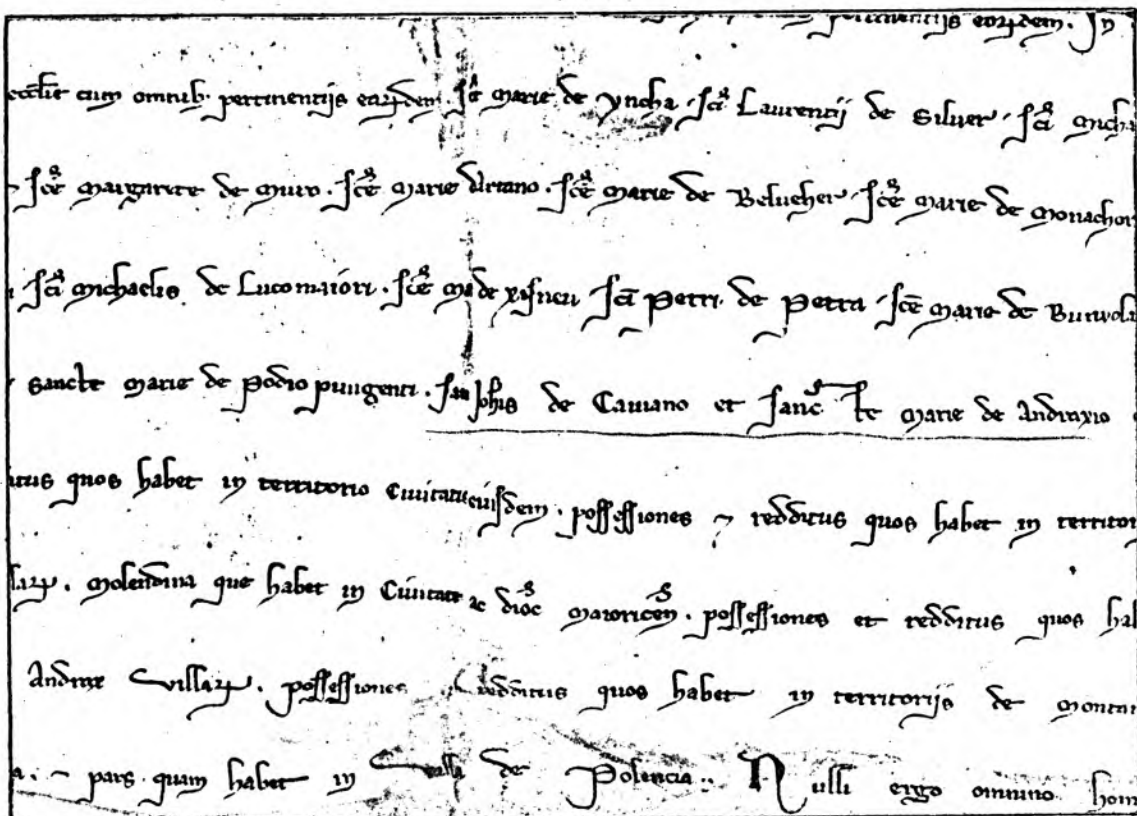 pertinentijs eorundem. In
ecclie cum omnib. pertinentijs earundem. Sce Marie de yncha. Sci Laurencij de Siluer. Sci Micha
Sce Margarete de Muro. Sce Marie Dirtano. Sce Marie de Belueher. Sce Marie de Monachor
Sci Michaelis de Lucomaiori. Sce Ma de xisneu Sci Petri de Petra Sce Marie de Bunyola
Sancte Marie de Podio pungenti. San Johis de Cauiano et Sanc te Marie de Andraxio
itus quos habet in territorio Ciuitatis eiusdem. possessiones ⁊ redditus quos habet in territor
llarꝝ. Molendina que habet in Ciuitate ac dioc Maioricen. possessiones et redditus quos hab
Andrax villarꝝ. possessiones redditus quos habet in territorijs de Montu
a. ⁊ pars quam habet in Villa de Polencia. Nulli ergo omnino hom